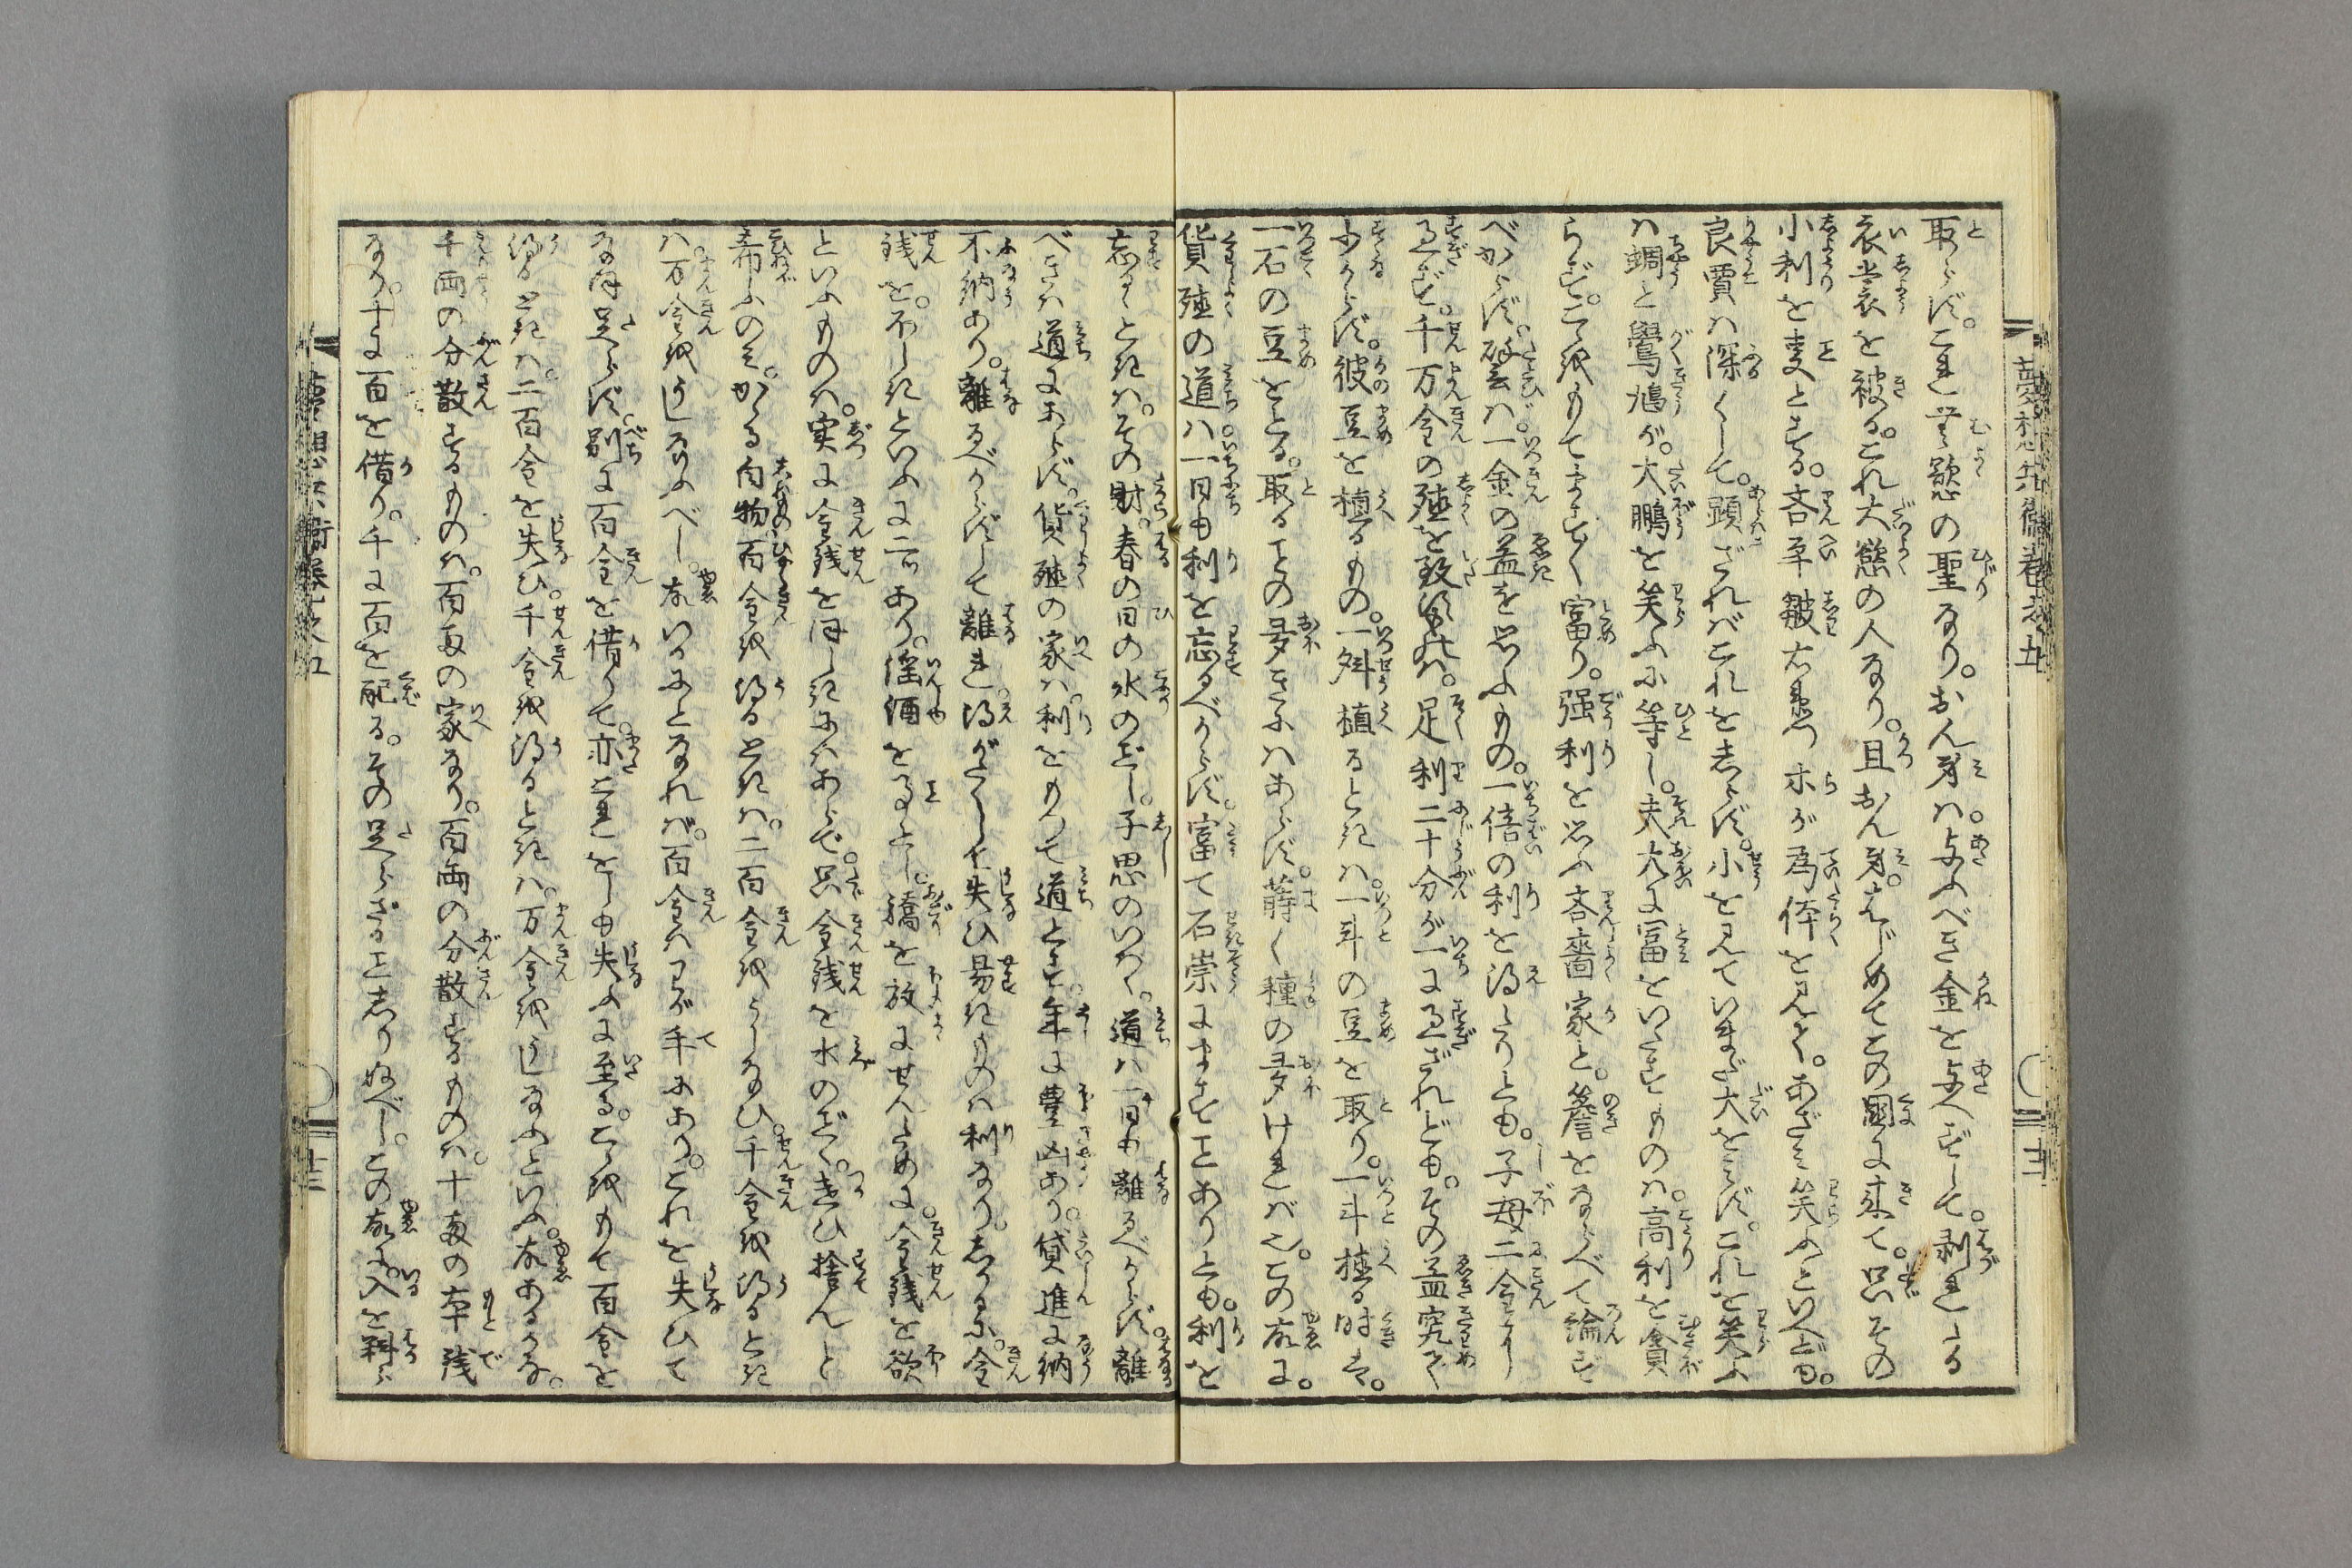 夢想兵衛巻之五
取らず。これ無慾の聖なり。おん身は。与ふべき金を与へずして。剥とる
衣裳を被る。これ大慾の人なり。且おん身。はじめてこの国に来て。只その
小利を事とする。吝 皺 ホが為体を見て。あざみ笑ふといへども。
良賈は深くして。顕ざればこれをしらず。小を見ていまだ大をみず。これを笑ふ
は蜩と鷽鳩が。大鵬を笑ふに等し。夫大に富をいたすものは。高利を貪
らず。こゝをもてますます富り。強利を思ふ吝嗇家と。簷をならべて論ず
べからず。譬ば。一金の益を思ふもの。一倍の利を得たりとも。子母二金に
過ず。千万金の殖を致すものは。足利二十分が一に過ざれども。その益究て
少からず。彼豆を植るもの。一舛植るときは。一斗の豆を取り。一斗植る時は。
一石の豆をとる。取るとの多きにはあらず。蒔く種の多ければ也。この故に。
貨殖の道は一日も利を忘るべからず。富て石崇にますことありとも。利を
忘るゝときは。その財。春の日の氷のごとし。子思のいはく。道は一日も離るべからず。離
べきは道にあらず。貨殖の家は。利をもつて道とす。年に豊凶あり。貸進に納
不納あり。離るべからずして離れ。得がたくして失ひ易きものは利なり。しかるに。金
銭を。ほしきといふに二ッあり。淫酒を事とし。驕を放にせんために。金銭を欲
といふものは。実に金銭をほしきにはあらで。只金銭を水のごとく。遣ひ捨んと
希ふのみ。かゝる白物百金を得るときは。二百金をうしなひ。千金を得るとき
は。万金をうしなふべし。故いかにとなれば。百金はわが手にあり。これを失ひて
なほ足らず。別に百金を借りて。亦これをしも失ふに至る。こゝをもて百金を
得るときは。二百金を失ひ。千金を得るときは。万金をうしなふといふ。故あるかな。
千両の分散するものは。百両の家なり。百両の分散するものは。十両の本銭
なり。十に百を借り。千に百を配る。その足らざることしりぬべし。この故に。入を料り
夢想兵衛巻之五